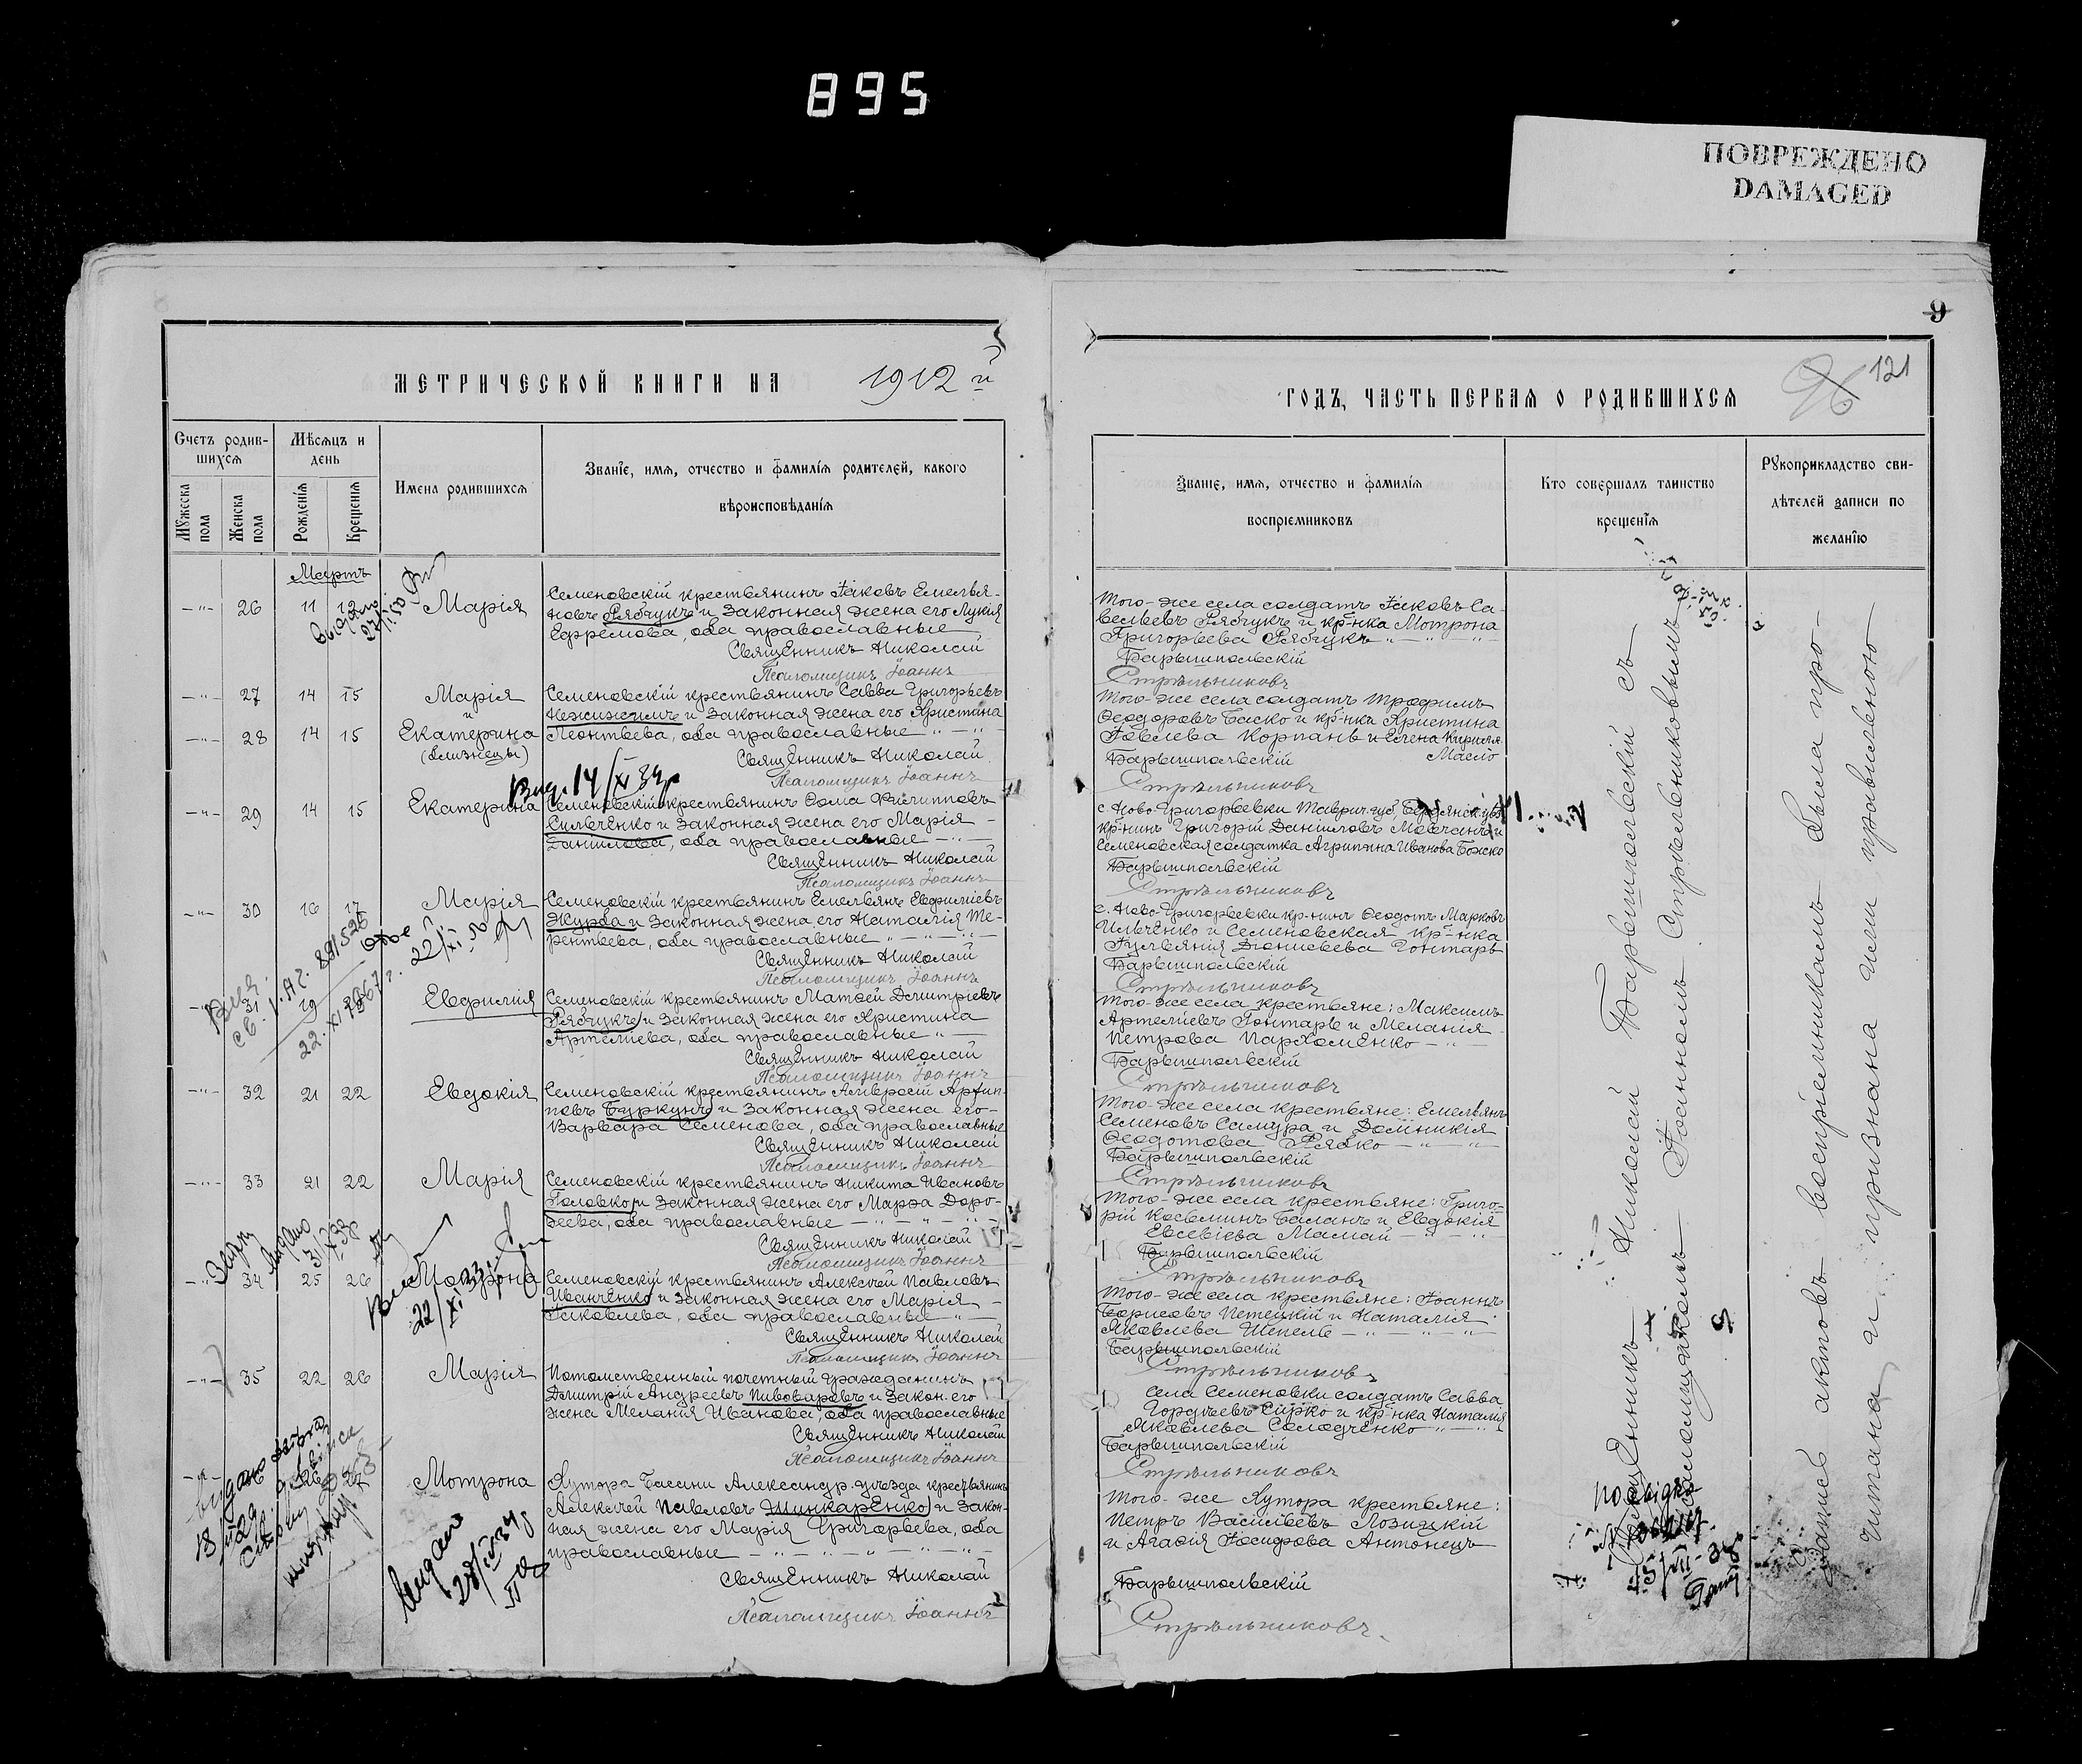 895
ПОВРЕЖДЕНО
DAMAGED
9
МЕТРИЧЕСКОЙ КНИГИ НА 1912 й
ГОДЪ, ЧАСТЬ ПЕРВАЯ О РОДИВШИХСЯ
96 121
Счетъ родив-
шихся
Мѣсяцъ и
день
Мужеска
пола
Женска
пола
Рожденія
Крещенія
Имена родившихся
Званіе, имя, отчество и фамилія родителей, какого
вѣроисповѣданія
Званіе, имя, отчество и фамилія
воспріемниковъ
Кто совершалъ таинство
крещенія
Рукоприкладство сви-
дѣтелей записи по
желанію
Мартъ
26 11 12 Марія
Семеновскій крестьянинъ Іаковъ Емелья-
новъ Рябчукъ и законная жена его Лукія
Ефремова, оба православные
Священникъ Николай
Псаломщикъ Іоаннъ
Того-же села солдатъ Іаковъ Са-
вельевъ Рябчукъ и кр-нка Мотрона
Григорьева Рябчукъ
Барышпольскій
Стрѣльниковъ
27 14 15 Марія
и
28 14 15 Екатерина
(близнецы)
Семеновскій крестьянинъ Савва Григорьевъ
Нежижимъ и законная жена его Христина
Леонтьева, оба православные
Священникъ Николай
Псаломщикъ Іоаннъ
Того-же села солдатъ Трофимъ
Ѳеодоровъ Баско и кр-нка Христина
Іовлева Корпань и Елена Кирилл.
Масло
Барышпольскій
Стрѣльниковъ
14/XI 34р
29 14 15 Екатерина
Семеновскій крестьянинъ Ѳома Филипповъ
Сильченко и законная жена его Марія
Даниилова, оба православные
Священникъ Николай
Псаломщикъ Іоаннъ
с. Ново-Григорьевки Таврич. губ, Бердянск. уѣз
кр-нинъ Григорій Данииловъ Мовчанъ и
Семеновская солдатка Агрипина Иванова Божко
Барышпольскій
Стрѣльниковъ
30 16 17 Марія
Семеновскій крестьянинъ Емельянъ Евфиміевъ
Журба и законная жена его Наталія Те-
рентьева, оба православные
Священникъ Николай
Псаломщикъ Іоаннъ
с. Ново-Григорьевки кр-нинъ Ѳеодотъ Марковъ
Ильченко и Семеновская кр-нка
Іуліянія Діонисьева Гонтарь
Барышпольскій
Стрѣльниковъ
31 19 Евфимія
Семеновскій крестьянинъ Матѳей Димитріевъ
Рябчукъ и законная жена его Христина
Артеміева, оба православные
Священникъ Николай
Псаломщикъ Іоаннъ
Того-же села крестьяне: Максимъ
Артеміевъ Гонтарь и Меланія
Петрова Пархоменко
Барышпольскій
Стрѣльниковъ
32 21 22 Евдокія
Семеновскій крестьянинъ Амвросій Архип-
повъ Буркунъ и законная жена его
Варвара Семенова, оба православные
Священникъ Николай
Псаломщикъ Іоаннъ
Того-же села крестьяне: Емельянъ
Семеновъ Самура и Домникія
Ѳеодотова Рябко
Барышпольскій
Стрѣльниковъ
33 21 22 Марія
Семеновскій крестьянинъ Никита Ивановъ
Головко и законная жена его Марѳа Доро-
ѳеева, оба православные
Священникъ Николай
Псаломщикъ Іоаннъ
Того-же села крестьяне: Григо-
рій Косьминъ Баланъ и Евдокія
Евсевіева Мамай
Барышпольскій
Стрѣльниковъ
34 25 26 Мотрона
Семеновскій крестьянинъ Алексѣй Павловъ
Иванченко и законная жена его Марія
Іаковлева, оба православные
Священникъ Николай
Псаломщикъ Іоаннъ
Того-же села крестьяне: Іоаннъ
Борисовъ Петецкій и Наталія
Яковлева Шепель
Барышпольскій
Стрѣльниковъ
35 22 26 Марія
Потомственный почетный гражданинъ
Димитрій Андреевъ Пивоваровъ и закон. его
жена Меланія Иванова, оба православные
Священникъ Николай
Псаломщикъ Іоаннъ
Села Семеновки солдатъ Савва
Гордѣевъ Сирко и кр-нка Наталія
Яковлева Солодченко
Барышпольскій
Стрѣльниковъ
26 27 Мотрона
Хутора Басани Александр. уѣзда крестьянинъ
Алексѣй Павловъ Шинкаренко и закон-
ная жена его Марія Григорьева, оба
православные
Священникъ Николай
Псаломщикъ Іоаннъ
Того-же хутора крестьяне:
Петръ Васильевъ Лозицкій
и Агаѳія Іосифова Антонецъ
Барышпольскій
Стрѣльниковъ.
Священникъ Николай Барышпольскій съ
псаломщикомъ Іоанномъ Стрѣльниковымъ
Запись актовъ воспріемникамъ была про-
читана и признана ими правильною